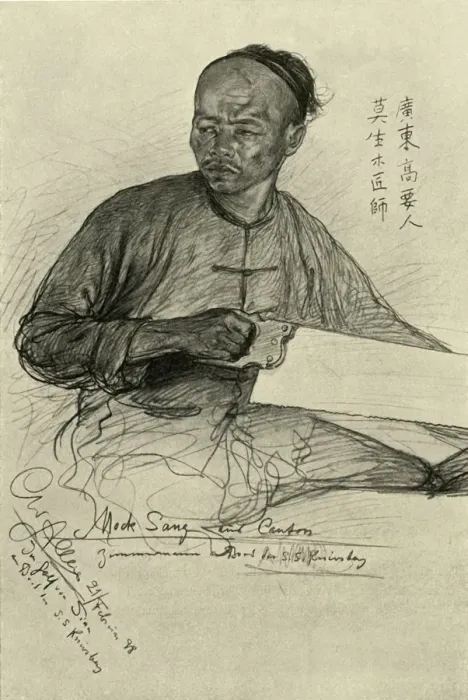 廣東高要人
莫生木匠師
Mock Sang aus Canton
Zimmermann an Bord des S.S. Königsberg
Chr Allers 21 Februar 98
Im Golf von Siam
an Bord des S.S. Königsberg